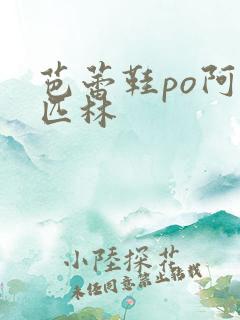 芭蕾鞋po阿
匹林
小陸探花
未经同意禁止转载